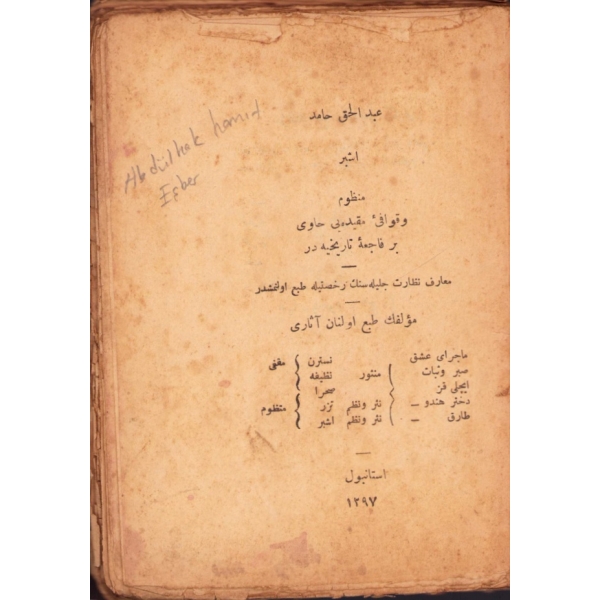 عبد الحق حامد
Abdülhak hamid
Eşber
اشبر
منظوم
و قوافیٔ مقیده‌یی حاوی
بر فاجعهٔ تاریخیه در
معارف نظارت جلیله‌سنك رخصتیله طبع اولنمشدر
مؤلفك طبع اولنان آثاری
ماجرای عشق
صبر وثبات
ایچلی قز
دختر هندو –
طارق –
منثور
نثر ونظم
نثر ونظم
نسترن
نظیفه
صحرا
تزر
اشبر
مقفی
منظوم
استانبول
١٢٩٧